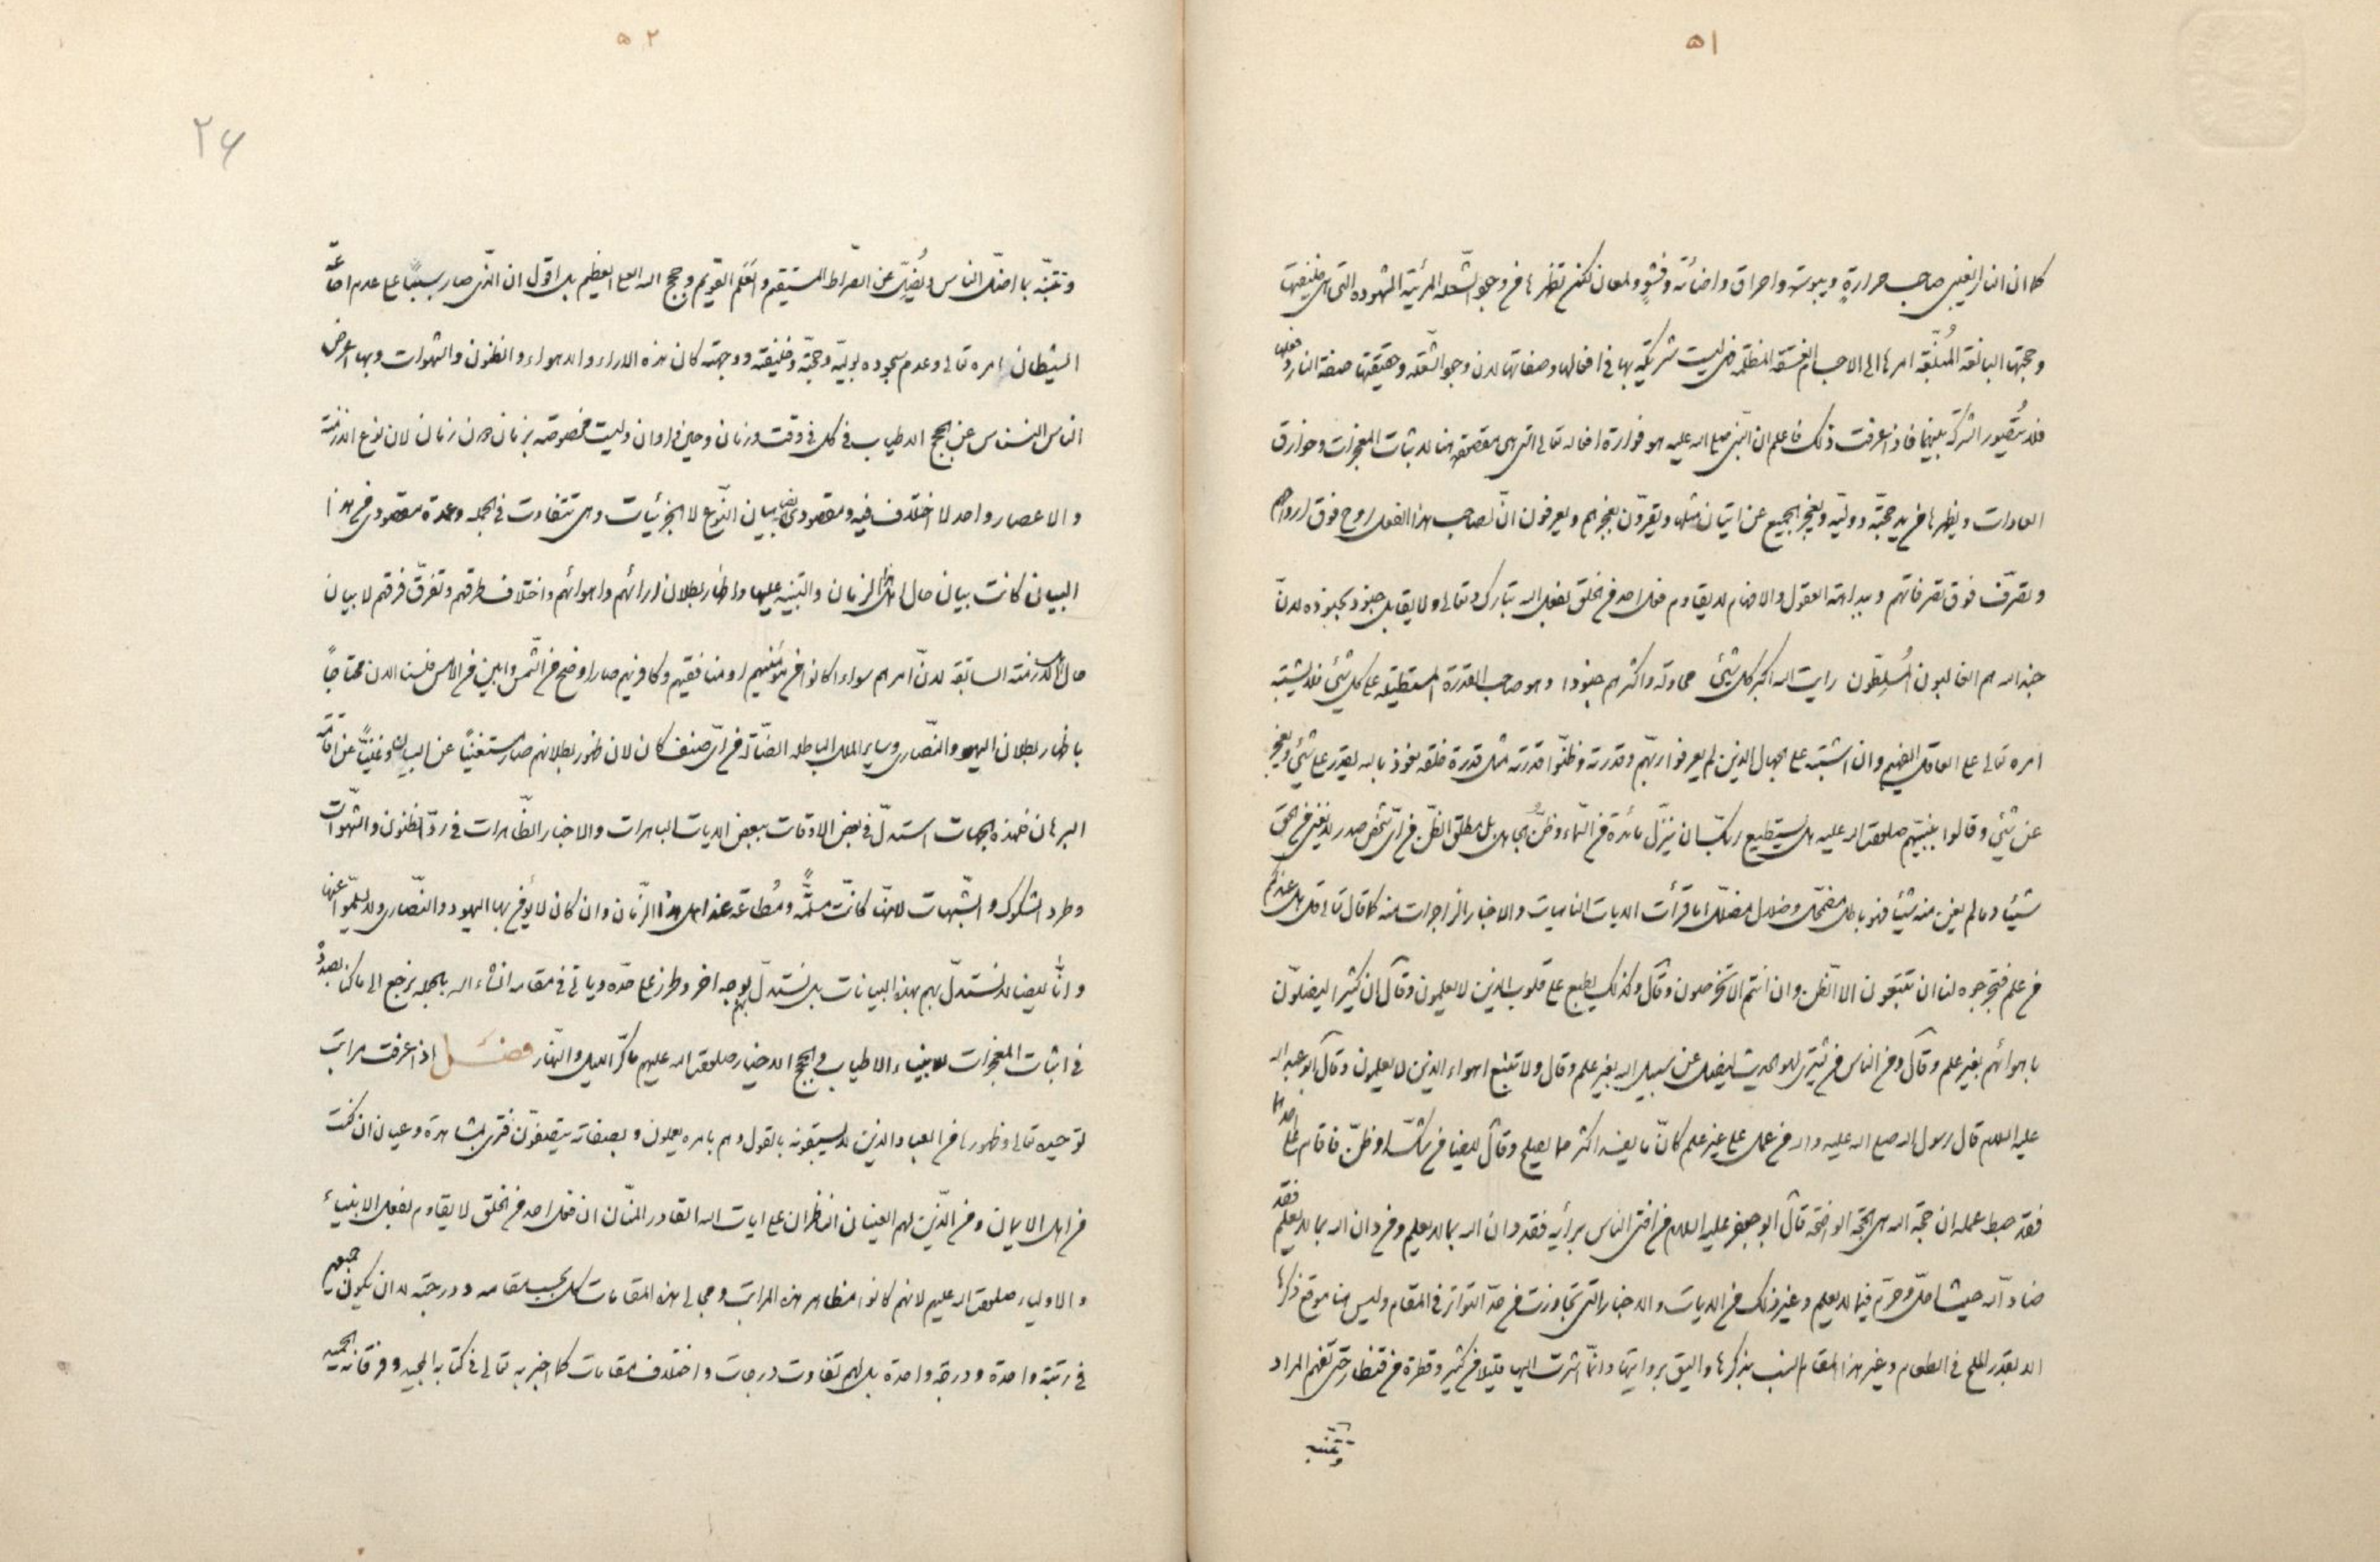 ۵۱
كما ان النار الغيبي صاحب حرارةٍ ويبوسة واحراق واضائة ولمعان لكن تظهرها في وجه الشعلة المرئية المشهودة التي هي خليفتها
وحجتها البالغة المُبلّغة امرها الى الاجسام فليست شريكة بها في افعالها وصفاتها لان وجه الشعلة وحقيقتها صفة النار وفعلها
فلا يُتصور الشركة بينهما فاذا عرفت ذلك فاعلم ان النبي صلى الله عليه هو فوارة افعاله تعالى التي هي مقصودة هنا لاثبات المعجزات وخوارق
العادات ويظهرها في يد حجته ووليه ويعجز الجميع عن اتيان مثلها ويقرّون بعجزهم ويعرفون انّ لصاحب هذا الفعل روح فوق ارواحهم
وتصرّف فوق تصرفاتهم وبداهة العقول والافهام لا يقاوم فعل احد في الخلق لفعل الله تبارك وتعالى ولا يقابل جنود بجنوده لانّ
جند الله هم الغالبون المُسلطون رايت الله اكبر كل شيئ محاولة واكثرهم جنودا وهو صاحب القدرة المستطيلة على كل شيئ فلا يشتبه
امره تعالى على العاقل الفهيم وان اشتبه على الجهال الذين لم يعرفوا ربّهم وقدرته وظنّوا قدرته مثل قدرة خلقه نعوذ بالله يقدر على شيئ ويعجز
عن شيئ وقالوا لنبيهم صلوات الله عليه هل يستطيع ربّك ان ينزّل مائدة من السماء وظنّ بل مطلق الظنّ من ايّ شخص صدر لا يغني من الحق
شيئا وما لم يغن منه شيئا فهو باطل مضمحل وضلال مضلّل اما قرأت الايات الناهيات والاخبار الزاجرات منه كما قال تعالى قل هل عندكم
من علم فتخرجوه لنا ان تتبعون الا الظن وان انتم الا تخرصون وقال وكذلك يطبع على قلوب الذين لا يعلمون وقال ان كثيرا ليضلّون
باهوائهم بغير علم وقال ومن الناس من يشتري لهو الحديث ليضل عن سبيل الله بغير علم وقال ولا تتبع اهواء الذين لا يعلمون وقال ابو عبد الله
عليه السلام قال رسول الله صلى الله عليه واله من عمل على غير علم كان ما يفسد اكثر مما يصلح وقال ايضا من شكّ او ظنّ فاقام على احدهما
فقد حبط عمله ان حجة الله هي الحجة الواضحة قال ابو جعفر عليه السلام من افتى الناس برأيه فقد دان الله بما لا يعلم ومن دان الله بما لا يعلم فقد
ضادّ الله حيث احلّ وحرّم فيما لا يعلم وغير ذلك من الايات والاخبار التي تجاوزت من حدّ التواتر في المقام وليس هنا موقع ذكرها
الا بقدر الملح في الطعام وغير هذا المقام انسب بذكرها واليق بروايتها وانّما اشرت اليها قليلا من كثير وقطرة من قنطار حتى تفهم المراد
وتتنبّه
۵۲
۲۶
وتتنبّه بما اضلّ الناس ويُضلّ عن الصّراط المستقيم والعَلَم القويم وحجج الله العلي العظيم بل اقول ان الذّي صار سببًا على عدم اطاعة
الشيطان امره تعالى وعدم سجوده لوليّه وحجّته وخليفته ووجهته كان هذه الاراء والاهواء والظنون والشهوات وبها اعرض
الناس النسناس عن الحجج الاطياب في كل وقت وزمان وحين واوان وليست مخصوصة بزمان دون زمان لان نوع الازمنة
والاعصار واحد لا اختلاف فيه ومقصودى بيان النّوع لا الجزئيات وهي تتفاوت في الجملة وعمدة مقصودى من هذا
البيان كانت بيان حال اهل الزمان والتنبيه عليها واظهار بطلان ارائهم واهوائهم واختلاف طرقهم وتفرّق فرقهم لا بيان
حال الازمنة السابقة لانّ امرهم سواء كانوا من مؤمنيهم او منافقيهم وكافريهم صار اوضح من الشّمس وابين من الامس فلسنا الان محتاجًا
باظهار بطلان اليهود والنّصارى وساير الملل الباطلة الضّالة من ايّ صنف كان لان ظهور بطلانهم صار مستغنيًا عن البيان وغنيًّا عن اقامة
البرهان فلهذه الجهات استدلّ في بعض الاوقات ببعض الايات الباهرات والاخبار الظّاهرات في ردّ الظنون والشّهوات
وطرد الشكوك والشّبهات لانّها كانت مسلّمةً ومُطاعة عند اهل هذا الزّمان وان كان لا يؤمن بها اليهود والنّصارى ولا يسلّموا عنها
وانّا ايضا لا نستدلّ بهم بهذه البيانات بل نستدلّ بهم بوجه اخر وطرز على حدّه وياتى في مقامه انشاء الله بالجملة نرجع الى ما كنّا بصدده
في اثبات المعجزات للانبياء الاطياب والحجج الاخيار صلوات الله عليهم ماكرّ الليل والنهار فصل اذا عرفت مراتب
توحيده تعالى وظهورها من العباد الذين لا يسبقونه بالقول وهم بامره يعملون وبصفاته يتصفون فترى بمشاهدة وعيان ان كنت
من اهل الايمان ومن الذّين لهم العينان الناظران على ايات الله القادر المنّان ان فعل احد من الخلق لا يقاوم بفعل الانبياء
والاولياء صلوات الله عليهم لانهم كانوا مظاهر هذه المراتب ومجالي هذه المقامات كل بحسب مقامه ودرجته لا ان يكون جميعهم
في رتبة واحدة ودرجة واحدة بل لهم تفاوت درجات واختلاف مقامات كما اخبر به تعالى في كتابه المجيد وفرقانه الحميد